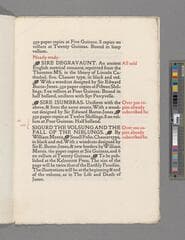 350 paper copies at Five Guineas, 8 copies on
vellum at Twenty Guineas. Bound in limp
vellum.
Nearly ready.
SIRE DEGRAVAUNT. An ancient
English metrical romance, reprinted from the
Thornton MS. in the library of Lincoln Ca-
thedral. 8vo. Chaucer type, in black and red.
With a woodcut designed by Sir Edward
Burne-Jones. 350 paper copies at Fifteen Shil-
lings, 8 on vellum at Four Guineas. Bound in
half holland, uniform with Syr Perecyvelle.
All sold
SIRE ISUMBRAS. Uniform with the
above, & from the same source. With a wood-
cut designed by Sir Edward Burne-Jones.
350 paper copies at Twelve Shillings, 8 on vel-
lum at Four Guineas. Bound in half holland.
Over 200 co-
pies already
subscribed for.
SIGURD THE VOLSUNG AND THE
FALL OF THE NIBLUNGS. By
William Morris. Small folio. Chaucer type,
in black and red. With 2 woodcuts designed by
Sir E. Burne-Jones, & new borders by William
Morris. 160 paper copies at Six Guineas, and 6
on vellum at Twenty Guineas. To be pub-
lished at the Kelmscott Press. The size of the
page will be twice that of the Earthly Paradise.
The illustrations will be at the beginning & end
of the volume, as in The Life and Death of
Jason.
Over 100 co-
pies already
subscribed for.